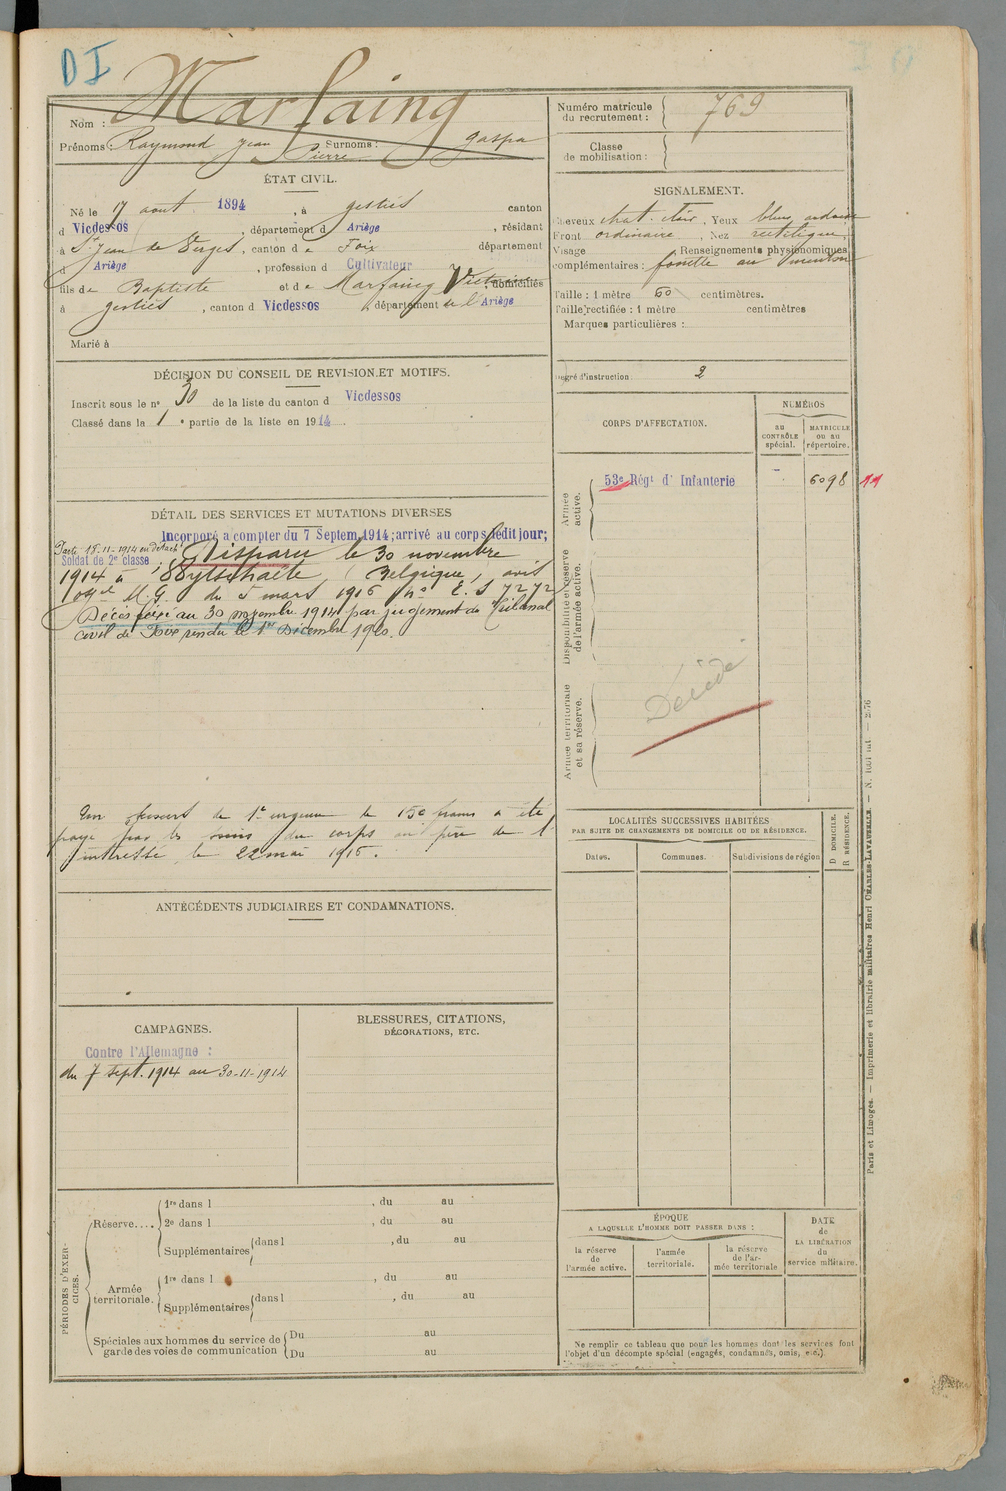 DI
Nom : Marfaing
Prénoms : Raymond Jean Pierre Surnoms : gaspa
Numéro matricule du recrutement : 769
Classe de mobilisation :
ÉTAT CIVIL.
Né le 17 août 1894, à gestiès canton
d Vicdessos, département d Ariège, résidant
à St Jean de Verges, canton d e Foix département
d Ariège, profession d Cultivateur
fils de Baptiste et de Marfaing Victorine domiciliés
à gestiès, canton d Vicdessos, département de l'Ariège
Marié à
SIGNALEMENT.
Cheveux chat. clair. Yeux bleus ordinaire
Front ordinaire, Nez rectiligne,
Visage ; Renseignements physionomiques
complémentaires : fossette au menton
Taille : 1 mètre 60 centimètres.
Taille rectifiée : 1 mètre centimètres
Marques particulières :
Degré d'instruction 2
DÉCISION DU CONSEIL DE REVISION ET MOTIFS.
Inscrit sous le no 30 de la liste du canton d Vicdessos
Classé dans la 1e partie de la liste en 1914.
DÉTAIL DES SERVICES ET MUTATIONS DIVERSES
Incorporé a compter du 7 Septem. 1914; arrivé au corps ledit jour;
Parti 18-11-1914 en détacht
Soldat de 2e classe; Disparu le 30 novembre
1914 à Wytschaete (Belgique) avis
offiel M.G. du 5 mars 1916 No E. S 7272
Décès fixé au 30 novembre 1914 par jugement du tribunal
civil de Foix rendu le 1er Décembre 1920.
Un secours de 1e urgence de 150 francs a été
payé par les soins du corps au père de l'
intéressé le 22 mai 1916.
CORPS D'AFFECTATION.
NUMÉROS
au CONTRÔLE spécial.
MATRICULE ou au répertoire.
Armée active.
53e Régt d' Infanterie
6098
11
Disponibilité et réserve de l'armée active.
Armée territoriale et sa réserve.
Décédé
LOCALITÉS SUCCESSIVES HABITÉES
PAR SUITE DE CHANGEMENTS DE DOMICILE OU DE RÉSIDENCE.
Dates. Communes. Subdivisions de région
D DOMICILE. R RÉSIDENCE.
ANTÉCÉDENTS JUDICIAIRES ET CONDAMNATIONS.
CAMPAGNES.
Contre l'Allemagne :
du 7 Sept. 1914 au 30-11-1914
BLESSURES, CITATIONS,
DÉCORATIONS, ETC.
PÉRIODES D'EXERCICES.
Réserve....
1re dans l , du au
2e dans l , du au
Supplémentaires dans l , du au
Armée territoriale.
1re dans l , du au
Supplémentaires dans l , du au
Spéciales aux hommes du service de garde des voies de communication
Du au
Du au
ÉPOQUE
A LAQUELLE L'HOMME DOIT PASSER DANS :
la réserve de l'armée active.
l'armée territoriale.
la réserve de l'armée territoriale
DATE de LA LIBÉRATION du service militaire.
Ne remplir ce tableau que pour les hommes dont les services font
l'objet d'un décompte spécial (engagés, condamnés, omis, etc.).
Paris et Limoges. — Imprimerie et librairie militaires Henri CHARLES-LAVAUZELLE.